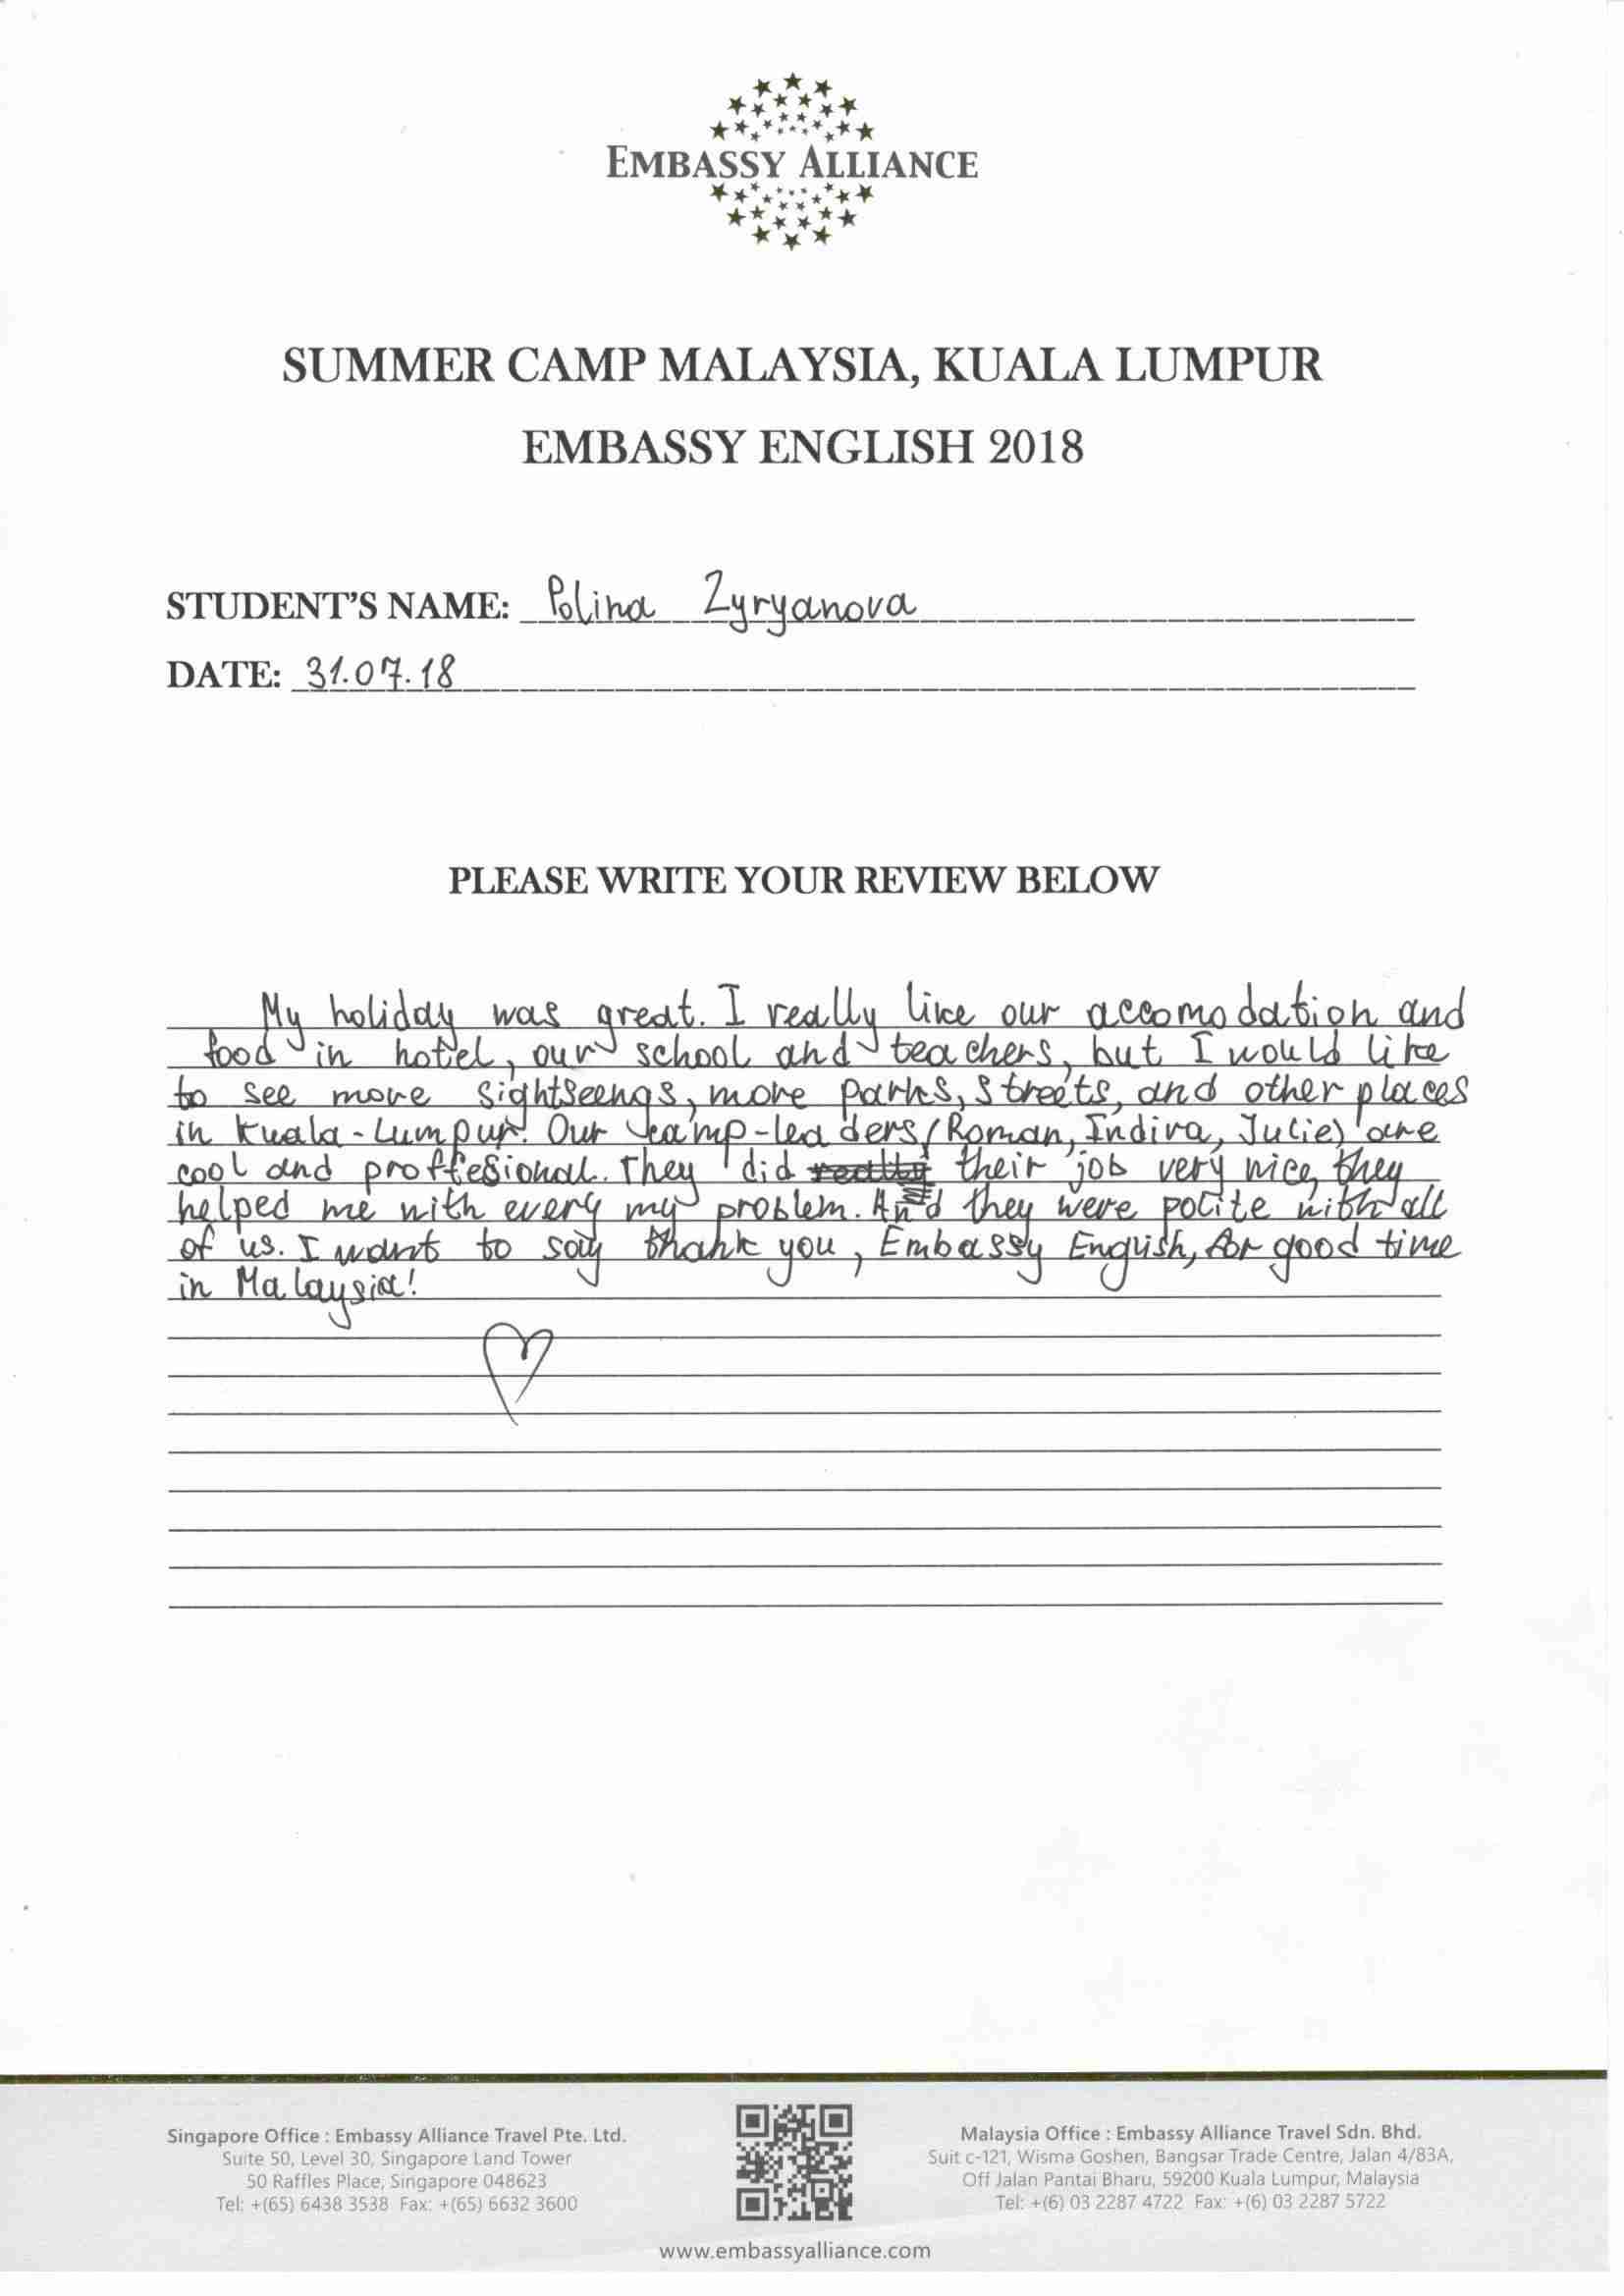 EMBASSY ALLIANCE
SUMMER CAMP MALAYSIA, KUALA LUMPUR
EMBASSY ENGLISH 2018
STUDENT'S NAME: Polina Zyryanova
DATE: 31.07.18
PLEASE WRITE YOUR REVIEW BELOW
My holiday was great. I really like our accomodation and
food in hotel, our school and teachers, but I would like
to see more sightseengs, more parks, streets, and other places
in Kuala-Lumpur. Our camp-leaders (Roman, Indira, Julie) are
cool and proffesional. They did really their job very nice, they
helped me with every my problem. And they were polite with all
of us. I want to say thank you, Embassy English, for good time
in Malaysia!
Singapore Office : Embassy Alliance Travel Pte. Ltd.
Suite 50, Level 30, Singapore Land Tower
50 Raffles Place, Singapore 048623
Tel: +(65) 6438 3538 Fax: +(65) 6632 3600
Malaysia Office : Embassy Alliance Travel Sdn. Bhd.
Suit c-121, Wisma Goshen, Bangsar Trade Centre, Jalan 4/83A,
Off Jalan Pantai Bharu, 59200 Kuala Lumpur, Malaysia
Tel: +(6) 03 2287 4722 Fax: +(6) 03 2287 5722
www.embassyalliance.com